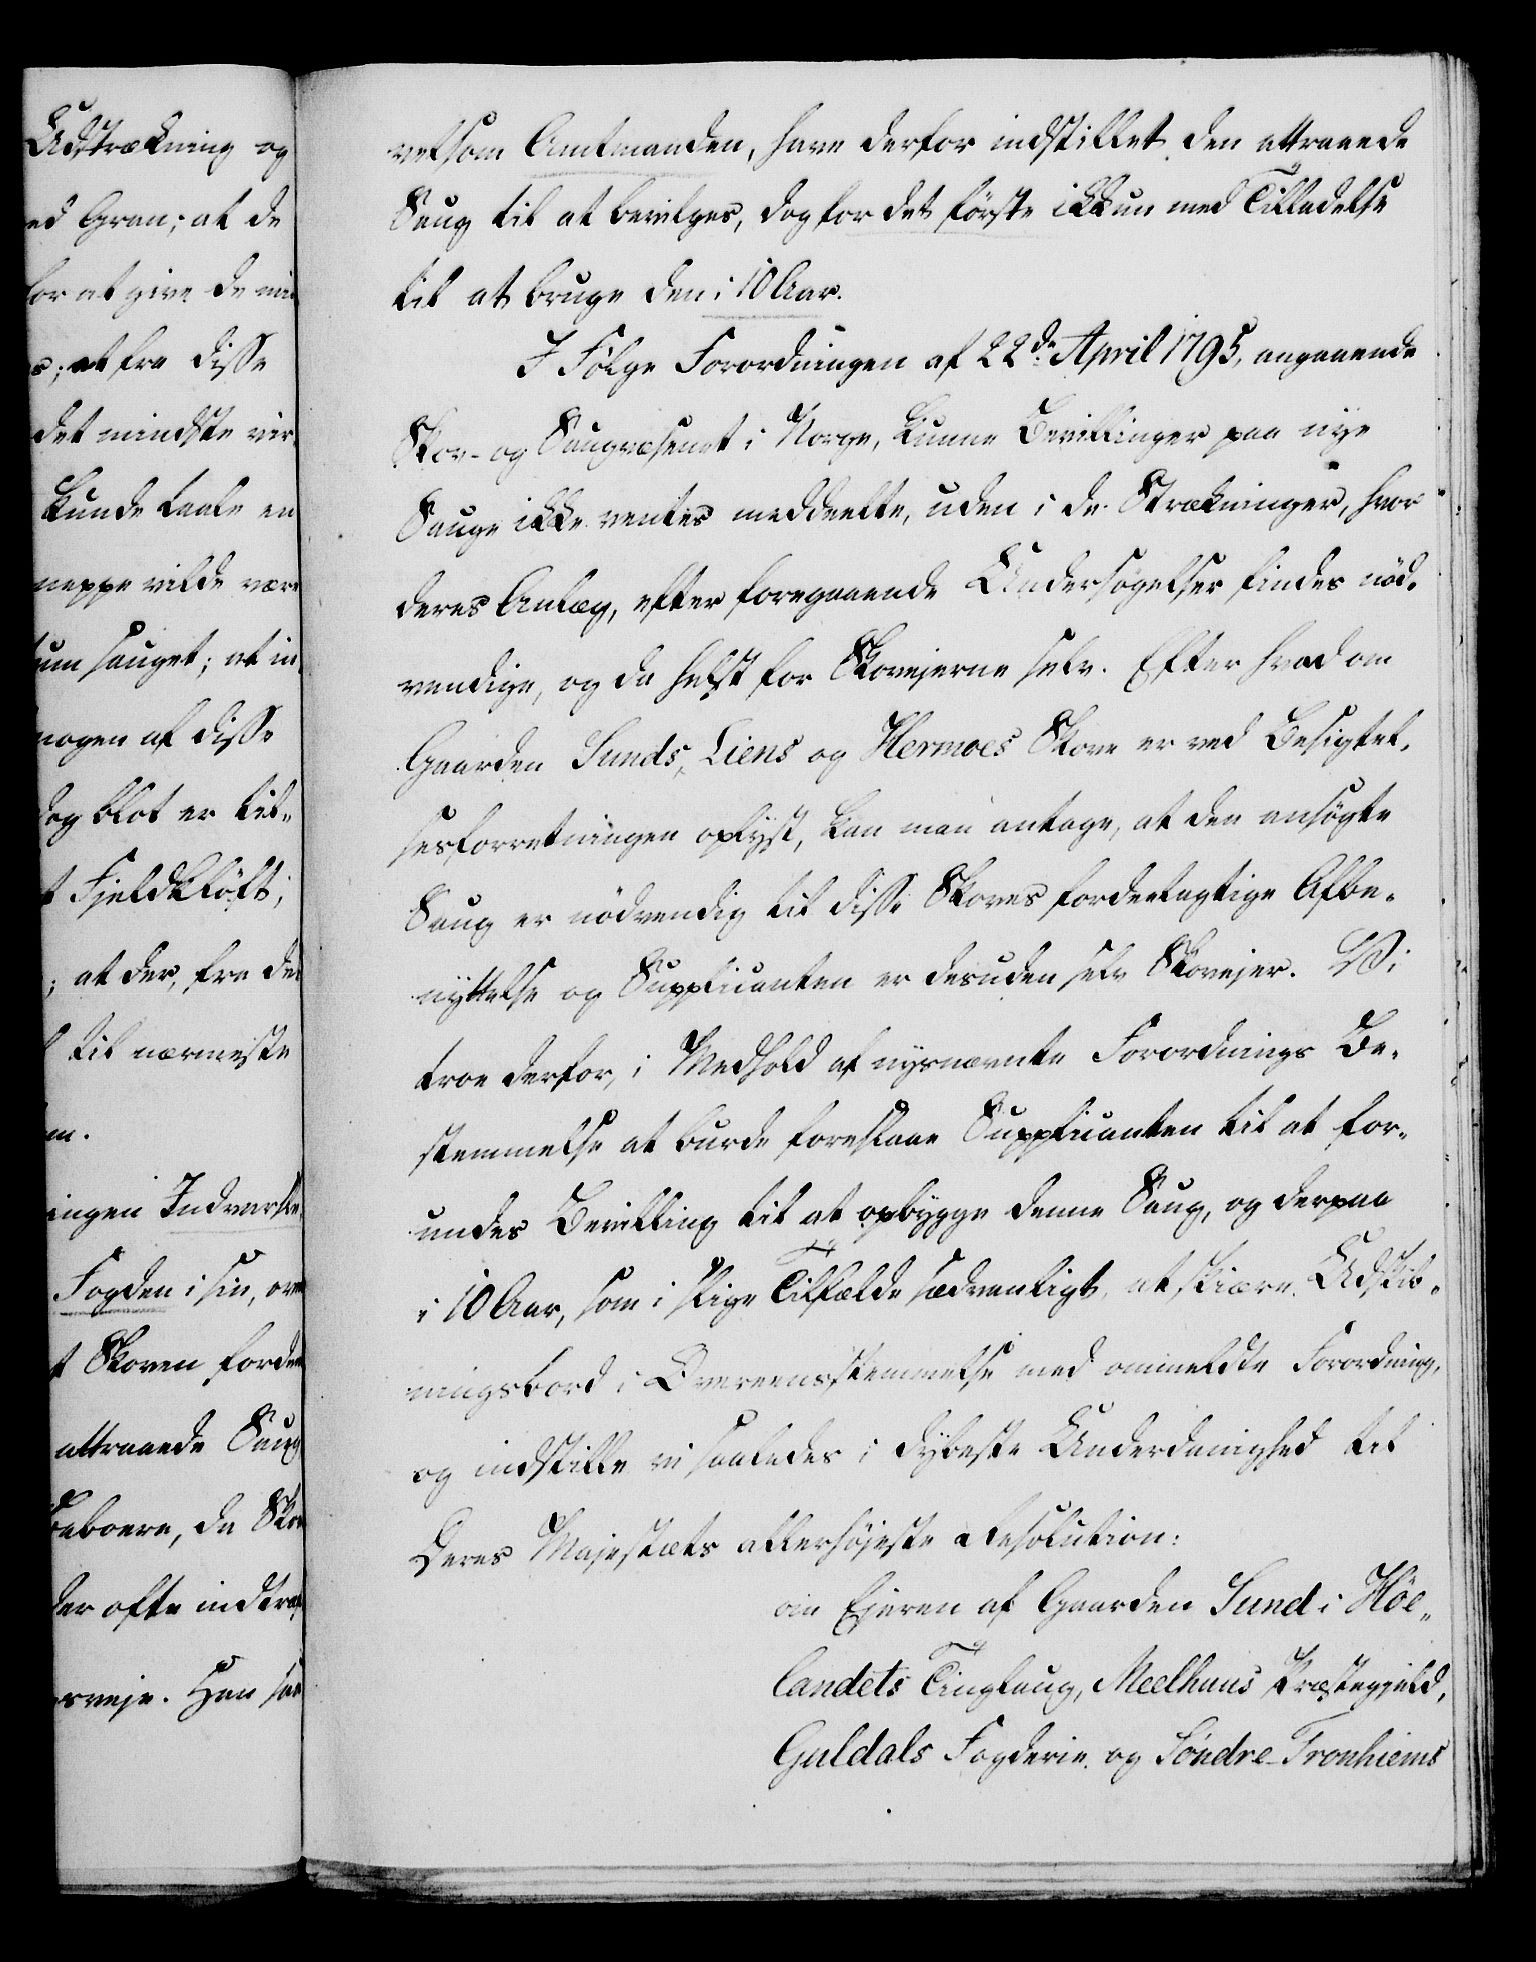 Udstrækning og
ed Gran; at de
for at give de min
s; at fra disse
det mindste vir-
kunde taale en
neppe vilde være
um sauget; at in
nogen af disse
dog blot er til-
t Fjeldkløft;
; at der, fra de
til nærmeste
m.
ingen Indvarsle
Fogden i sin, ove
t Skoven forde
attraaede Saug
eboere, da Sko
der ofte indtræf
sveje. Han saa
velsom Amtmanden, have derfor indstillet den attraaede
Saug til at bevilges, dog for det første ikkun med Tilladelse
til at bruge den i 10 Aar.
I Følge Forordningen af 22de April 1795, angaaende
Skov- og Saugvæsenet i Norge, kunne Bevillinger paa nye
Sauge ikke ventes meddeelte, uden i de Strækninger, hvor
deres Anlæg, efter foregaaende Undersøgelser findes nød-
vendige, og da helst for Skovejerne selv. Efter hvad om
Gaarden Sunds, Liens og Hermoes Skove er ved Besigtel-
sesforretningen oplyst, kan man antage, at den ansøgte
Saug er nødvendig til disse Skoves fordeelagtige Afbe-
nyttelse og Supplicanten er desuden selv Skovejer. Vi
troe derfor, i Medhold af nysnævnte Forordnings Be-
stemmelse at burde foreslaae Supplicanten til at for-
undes Bevilling til at opbygge denne Saug, og derpaa
i 10 Aar, som i slige Tilfælde sædvanligt, at skiære Udskib-
ningsbord i Overeensstemmelse med ommeldte Forordning,
og indstille vi saaledes i dybeste Underdanighed til
Deres Majestæts allerhøjeste Resolution:
om Ejeren af Gaarden Sund i Høe-
landets Tinglaug, Meelhuus Præstegjeld,
Guldals Fogderie og Søndre-Tronhiems